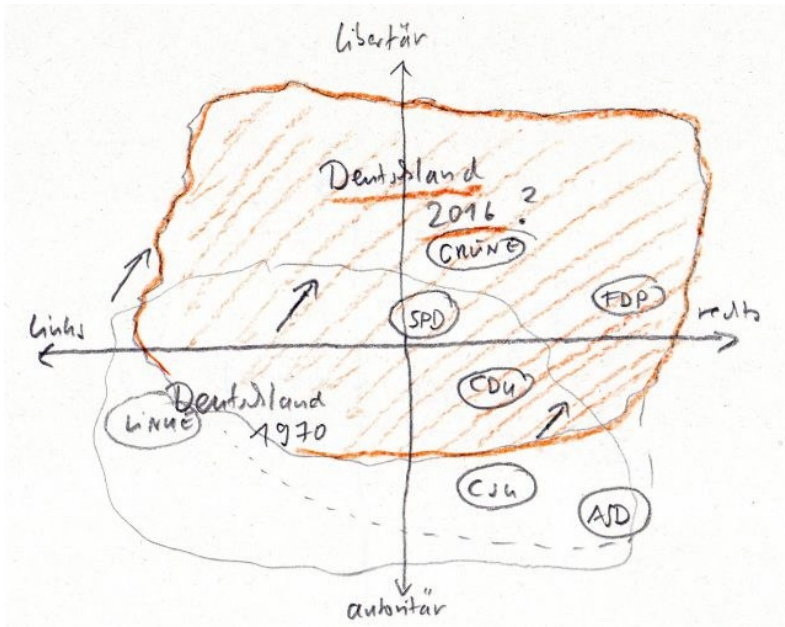 libertär
Deutschland
2016?
GRÜNE
FDP
SPD
links
rechts
CDU
Deutschland
1970
LINKE
CSU
AfD
autoritär